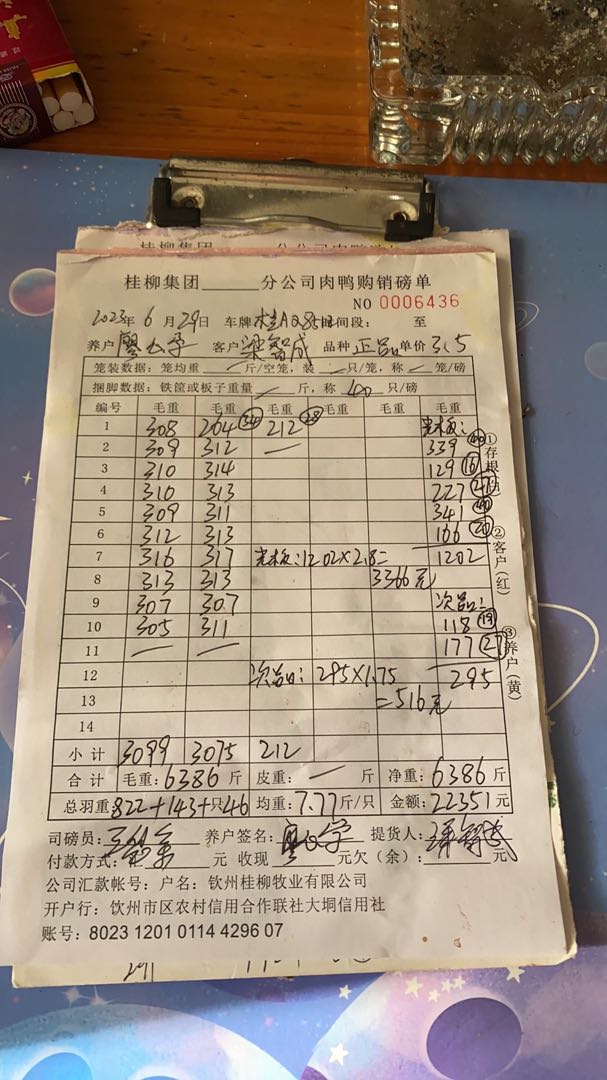 桂柳集团 分公司肉鸭购销磅单
NO 0006436
2023年 6 月 29日 车牌 桂AQ85 时间段： 至
养户 客户 梁智成 品种 正品 单价 3.5
笼装数据：笼均重 — 斤/空笼，装 — 只/笼，称 — 笼/磅
捆脚数据：铁筐或板子重量 — 斤，称 40 只/磅
编号 毛重 毛重 毛重 毛重 毛重 毛重
1 308 264 34 212 28 光板：
2 309 312 — 339 40
3 310 314 129 16
4 310 313 227 27
5 309 311 341 40
6 312 313 166 20
7 316 317 光板：1202×2.8= 1202
8 313 313 3366元
9 307 307 次品：
10 305 311 118 19
11 — — 177 27
12 次品：295×1.75 295
13 =516元
14
小计 3099 3075 212
合计 毛重：6386 斤 皮重： — 斤 净重：6386 斤
总羽重 822+143+只46 均重：7.77斤/只 金额：22351元
司磅员： 养户签名： 提货人：
付款方式： 元 收现 元欠（余）： 元
公司汇款帐号：户名：钦州桂柳牧业有限公司
开户行：钦州市区农村信用合作联社大垌信用社
账号：8023 1201 0114 4296 07
①存根
②客户（红）
③养户（黄）